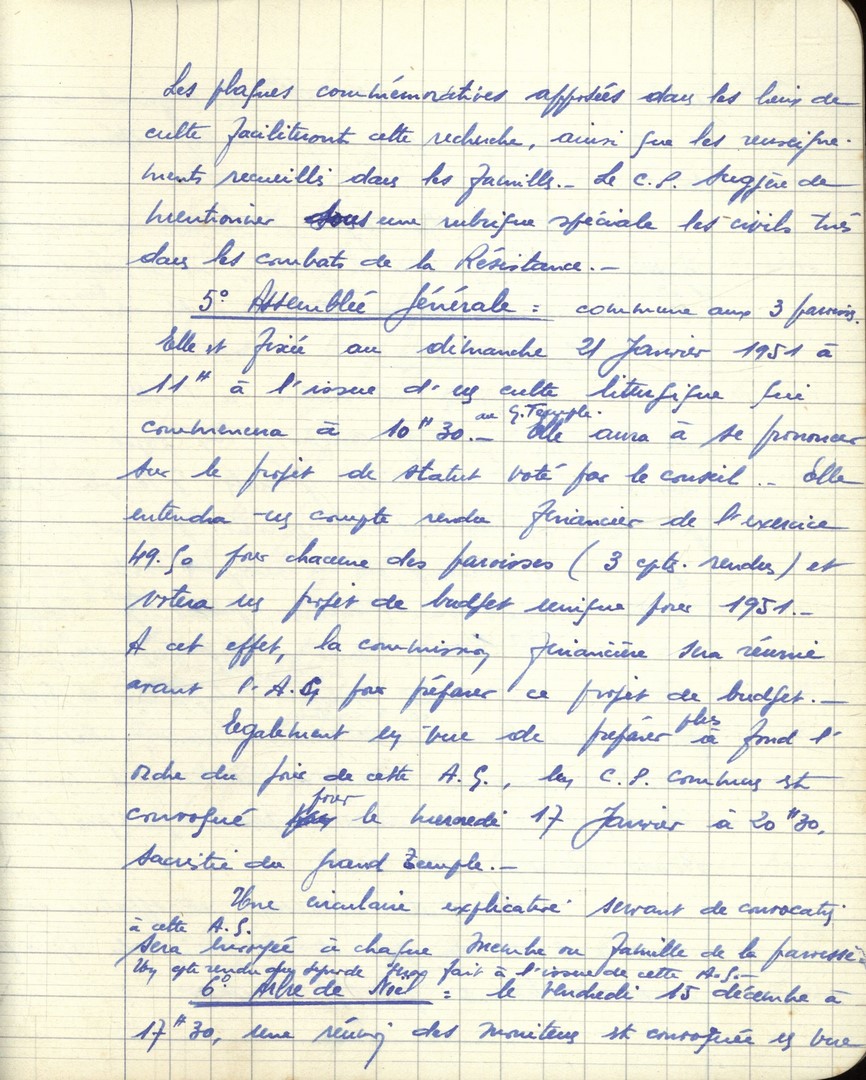 Les plaques commémoratives apposées dans les lieux de
culte faciliteront cette recherche, ainsi que les renseigne-
ments recueillis dans les familles.- Le C.P. suggère de
mentionner sous une rubrique spéciale les civils tués
dans les combats de la Résistance.-
5° Assemblée Générale = commune aux 3 paroiss.
Elle est fixée au dimanche 21 Janvier 1951 à
11H à l'issue d'un culte liturgique qui
commencera à 10H30.- au G. Temple. Elle aura à se prononcer
sur le projet de statut voté par le conseil.- Elle
entendra un compte rendu financier de l'exercice
49.50 pour chacune des paroisses (3 cpts. rendus) et
votera un projet de budget unique pour 1951.-
A cet effet, la commission financière sera réunie
avant l'A.G pour préparer ce projet de budget.-
Egalement en vue de préparer plus à fond l'
ordre du jour de cette A.G., un C.P. commun est
convoqué pour le mercredi 17 Janvier à 20H30,
sacristie du grand Temple.-
Une circulaire explicative servant de convocation
à cette A.G.
sera envoyée à chaque membre ou famille de la paroisse.-
Un cpte rendu du fait à l'issue de cette A.G.-
6° Arbre de Noël = le vendredi 15 décembre à
17H30, une réunion des moniteurs est convoquée en vue